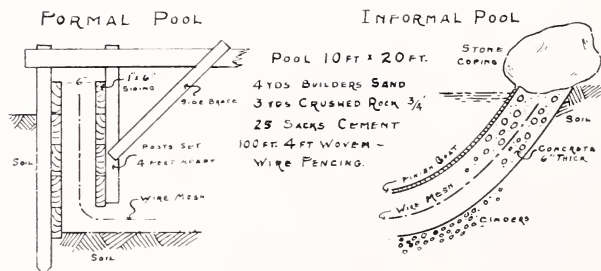 FORMAL POOL
INFORMAL POOL
6"
1"x6"
SIDING
SIDE BRACE
POSTS SET
4 FEET APART
SOIL
WIRE MESH
SOIL
POOL 10 FT x 20 FT.
4 YDS BUILDERS SAND
3 YDS CRUSHED ROCK 3/4"
25 SACKS CEMENT
100 FT. 4 FT WOVEN -
WIRE FENCING.
STONE
COPING
SOIL
CONCRETE
6" THICK
FINISH COAT
WIRE MESH
CINDERS